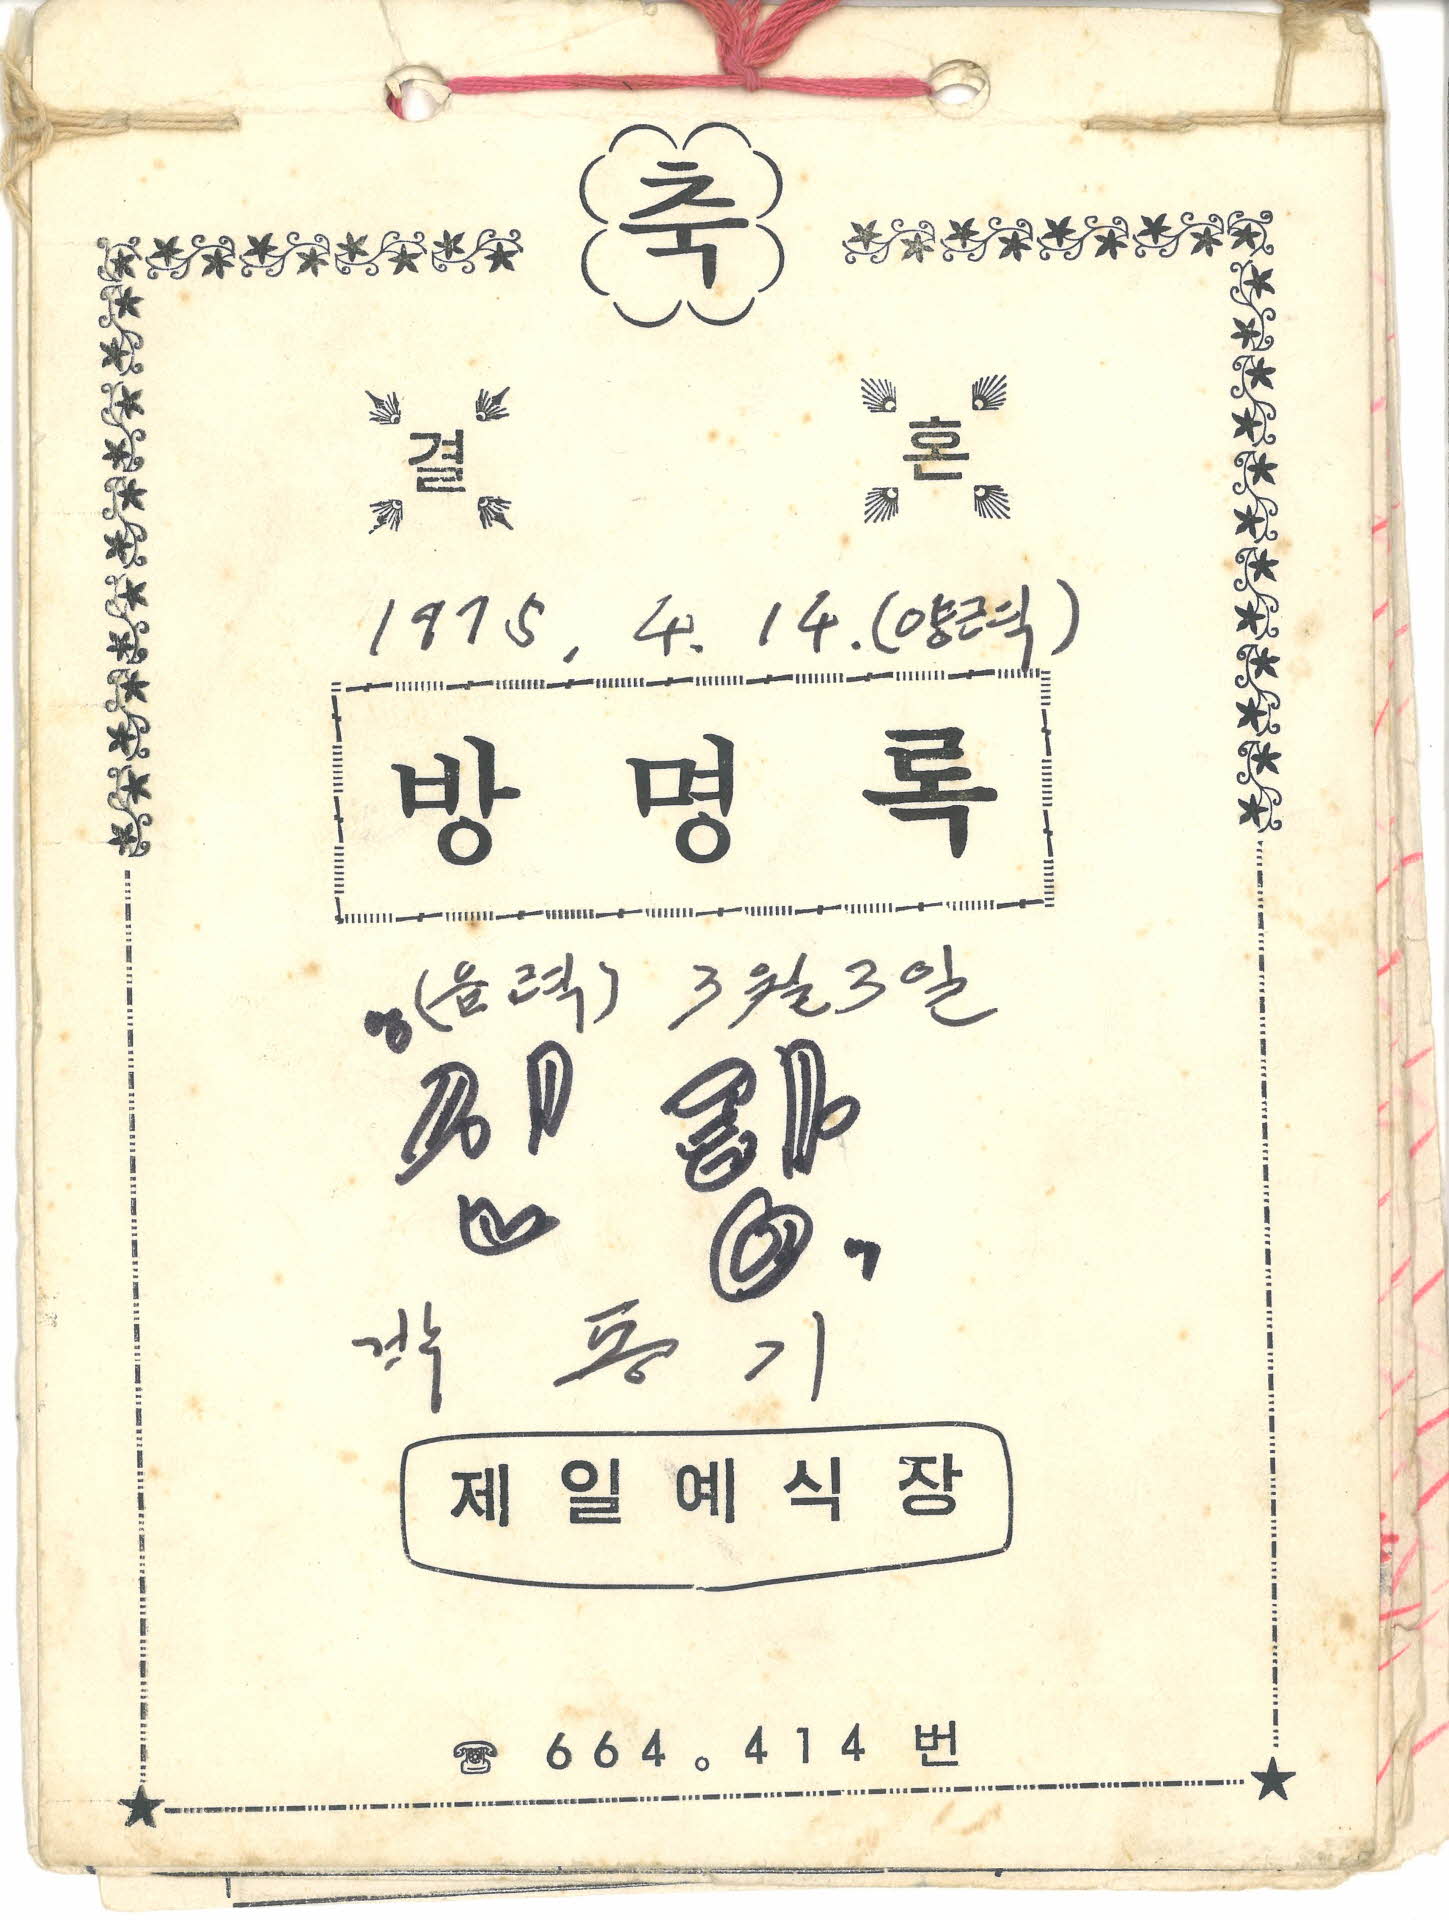 축
결 혼
1975, 4. 14.(양력)
방 명 록
(음력) 3월 3일
제 일 예 식 장
☎ 664。414 번